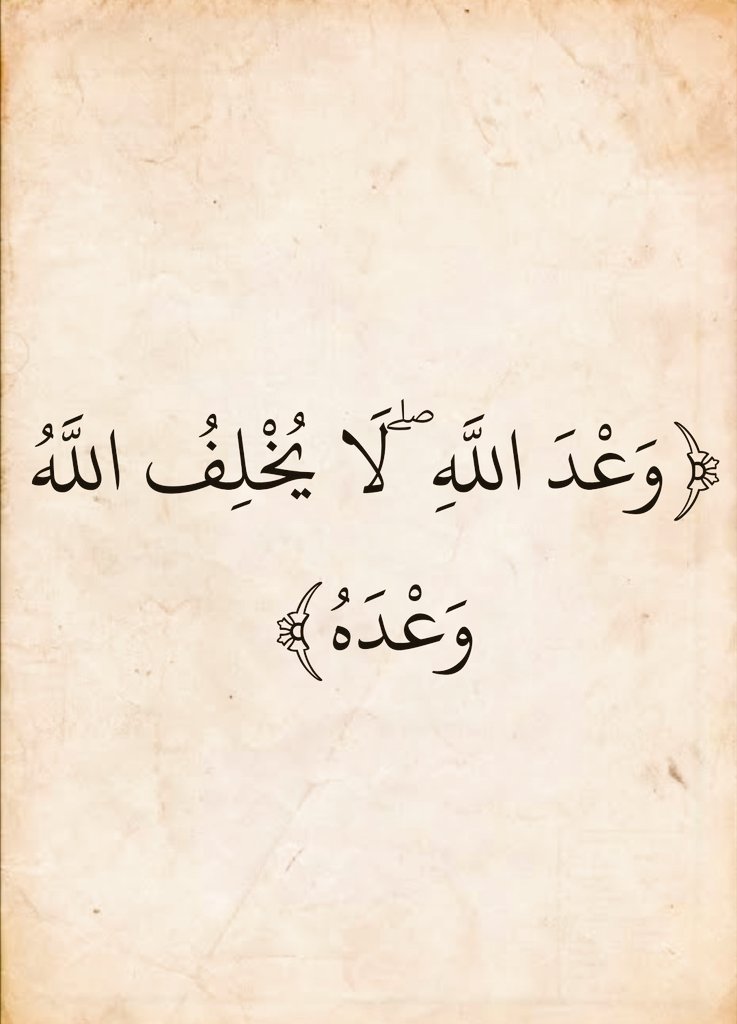 ﴿ وَعْدَ اللَّهِ ۖ لَا يُخْلِفُ اللَّهُ
وَعْدَهُ ﴾